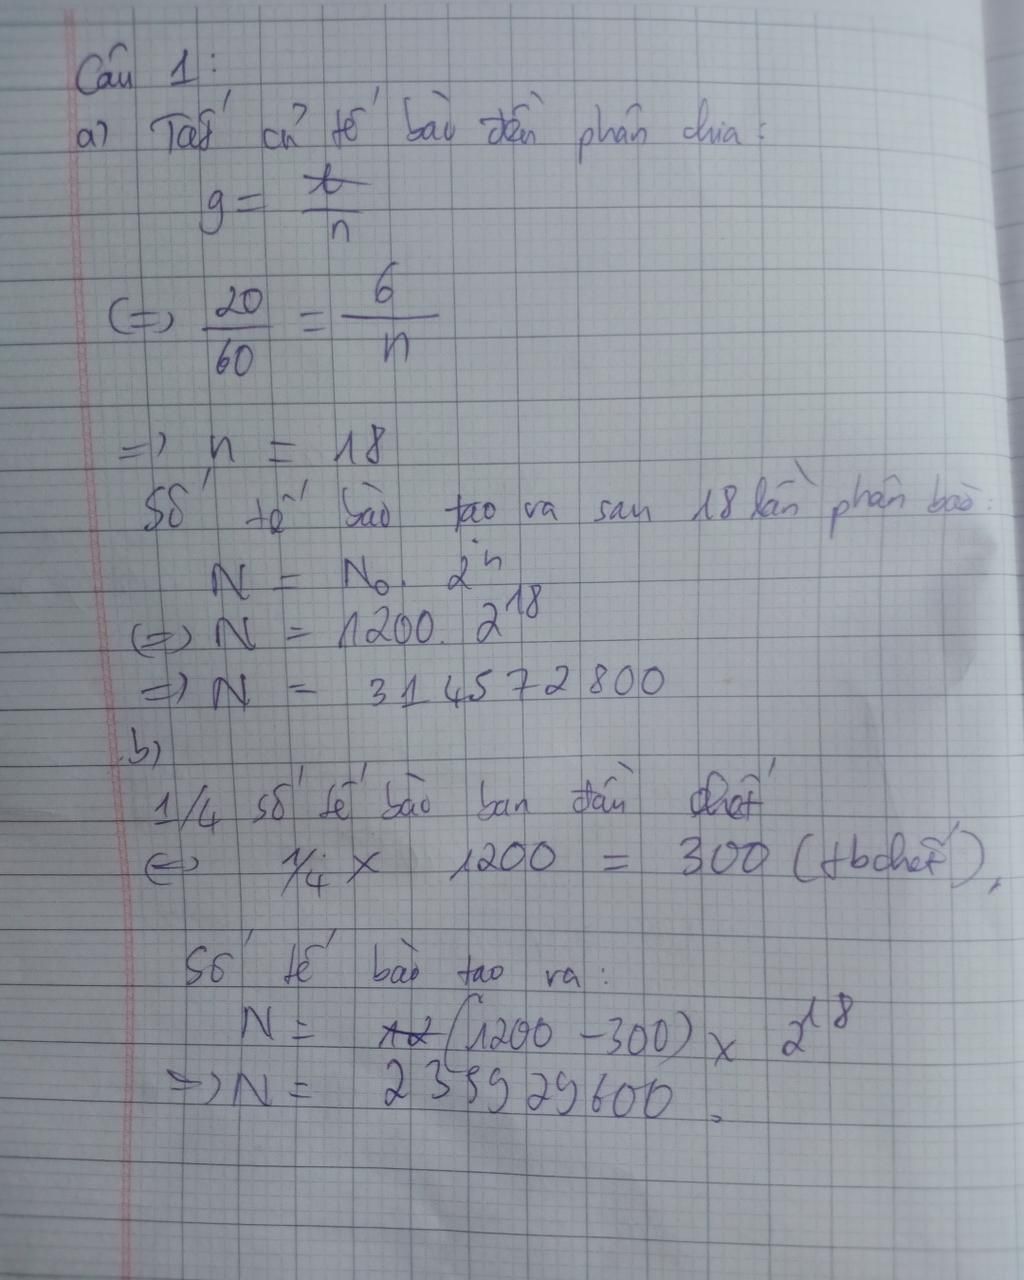 Câu 1:
a) Tất cả tế bào đều phân chia:
g = t/n
(=) 20/60 = 6/n
=) n = 18
Số tế bào tạo ra sau 18 lần phân bào:
N = N₀. 2ⁿ
(=) N = 1200. 2¹⁸
=) N = 314572800
b)
1/4 số tế bào ban đầu chết
(=) 1/4 x 1200 = 300 (tb chết),
Số tế bào tạo ra:
N = (1200 - 300) x 2¹⁸
=) N = 235929600.